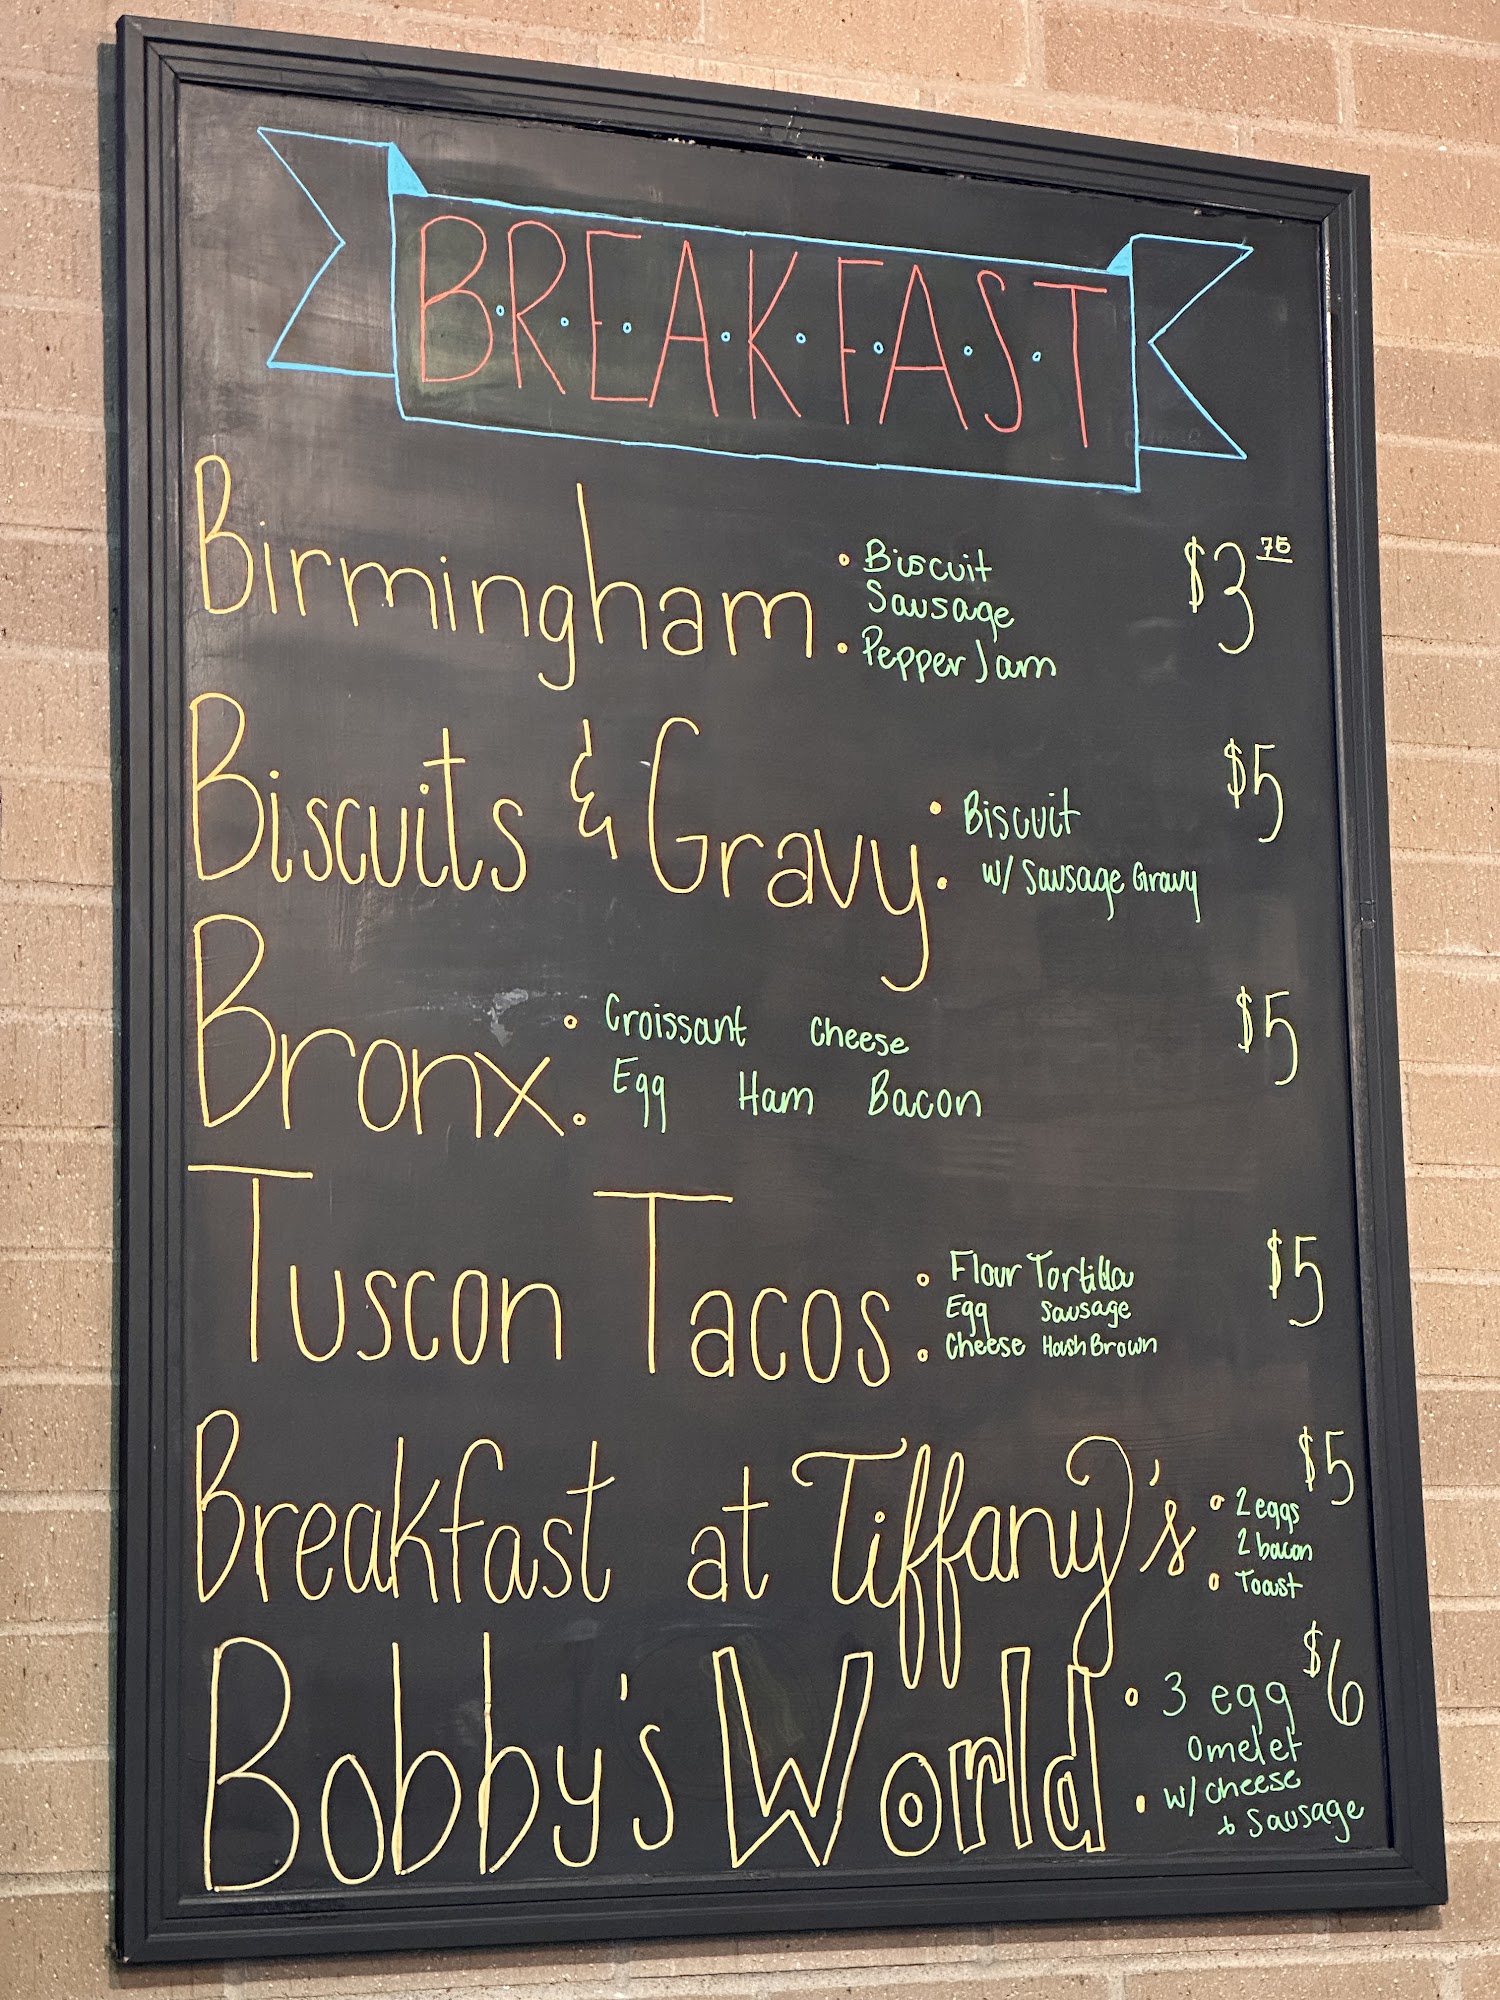 B.R.E.A.K.F.A.S.T
Birmingham: Biscuit $3 75
Sausage
Pepper Jam
Biscuits & Gravy: Biscuit $5
w/ Sausage Gravy
Bronx: Croissant Cheese $5
Egg Ham Bacon
Tuscon Tacos: Flour Tortilla $5
Egg Sausage
Cheese Hash Brown
Breakfast at Tiffany's: 2 eggs $5
2 bacon
Toast
Bobby's World: 3 egg $6
Omelet
w/ cheese
& Sausage